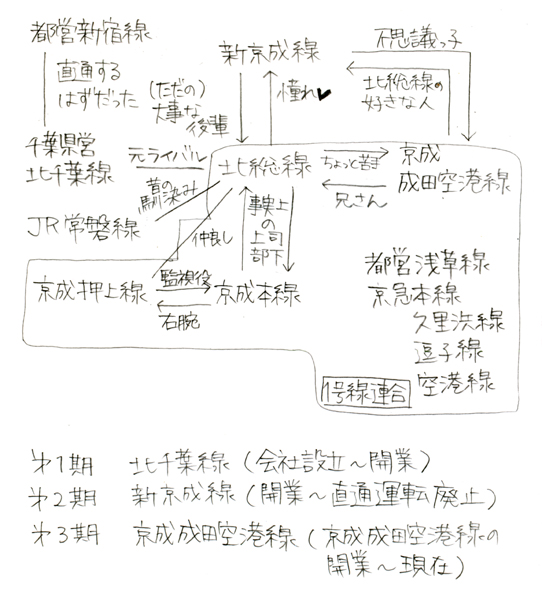 都営新宿線
直通する
はずだった
新京成線
不思議っ子
憧れ♥
北総線の
好きな人
(ただの)
大事な
後輩
千葉県営
北千葉線
元ライバル
北総線
ちょっと苦手
兄さん
京成
成田空港線
昔の
馴染み
JR常磐線
仲良し
事実上
の上司
部下
京成押上線
監視役
右腕
京成本線
都営浅草線
京急本線
久里浜線
逗子線
空港線
1号線連合
第1期 北千葉線(会社設立~開業)
第2期 新京成線(開業~直通運転廃止)
第3期 京成成田空港線(京成成田空港線の
開業~現在)